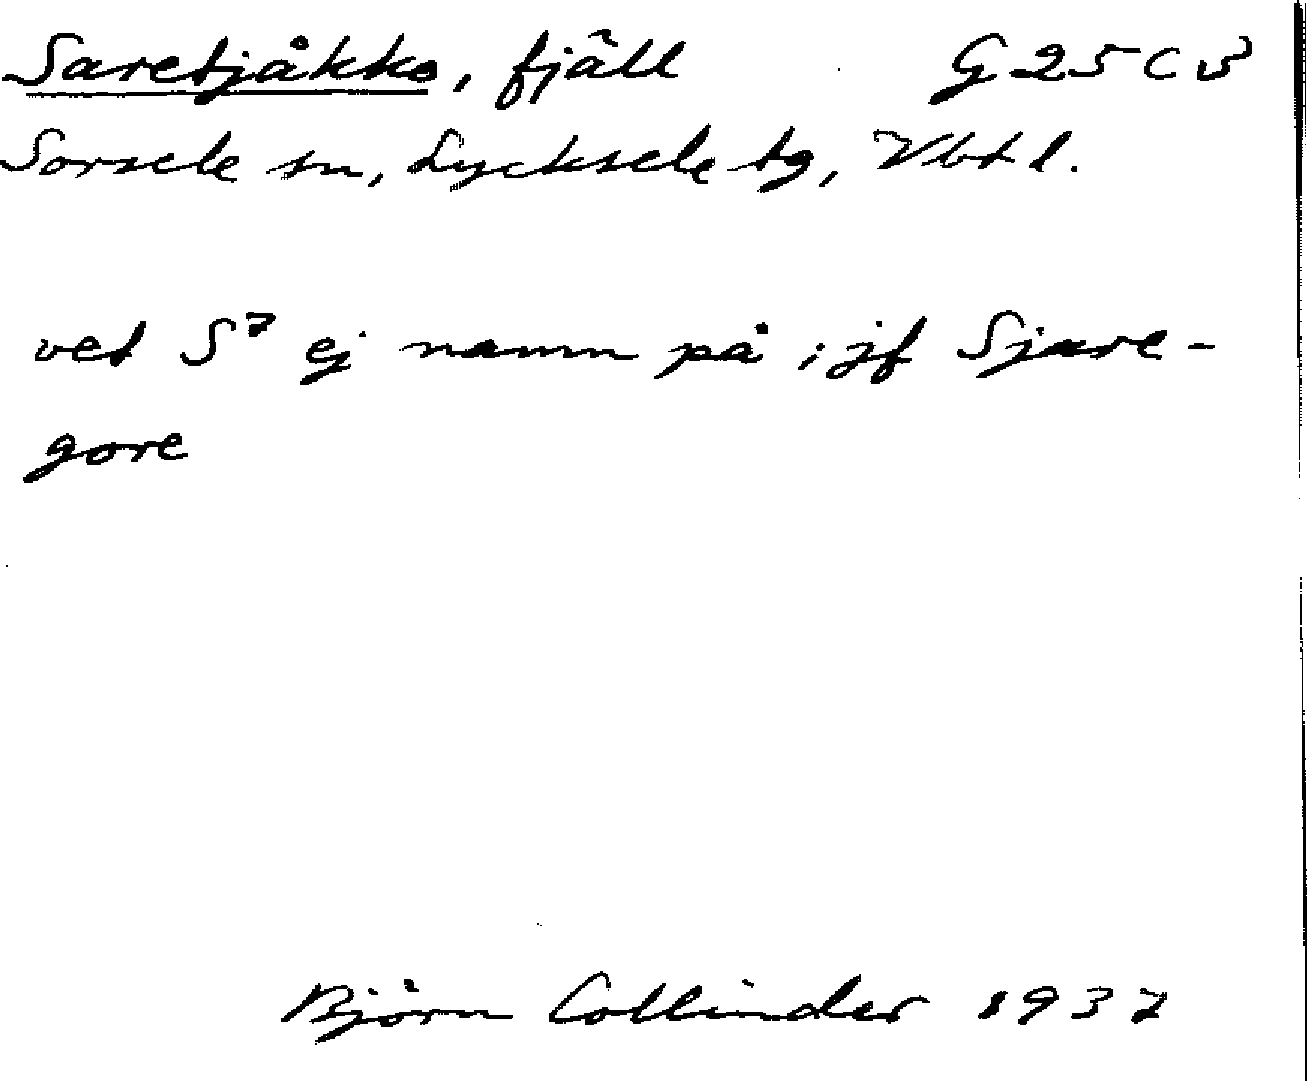 Saretjåkko, fjäll G 25 C v
Sorsele sn, Lycksele tg, Vbtl.
vet S⁷ ej namn på ; jf Sjare-
gore
Björn Collinder 1937